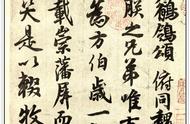 鶺鴒頌 俯同魏
朕之兄弟唯有
為方伯歲一
載崇藩屏而
笑是以輟牧